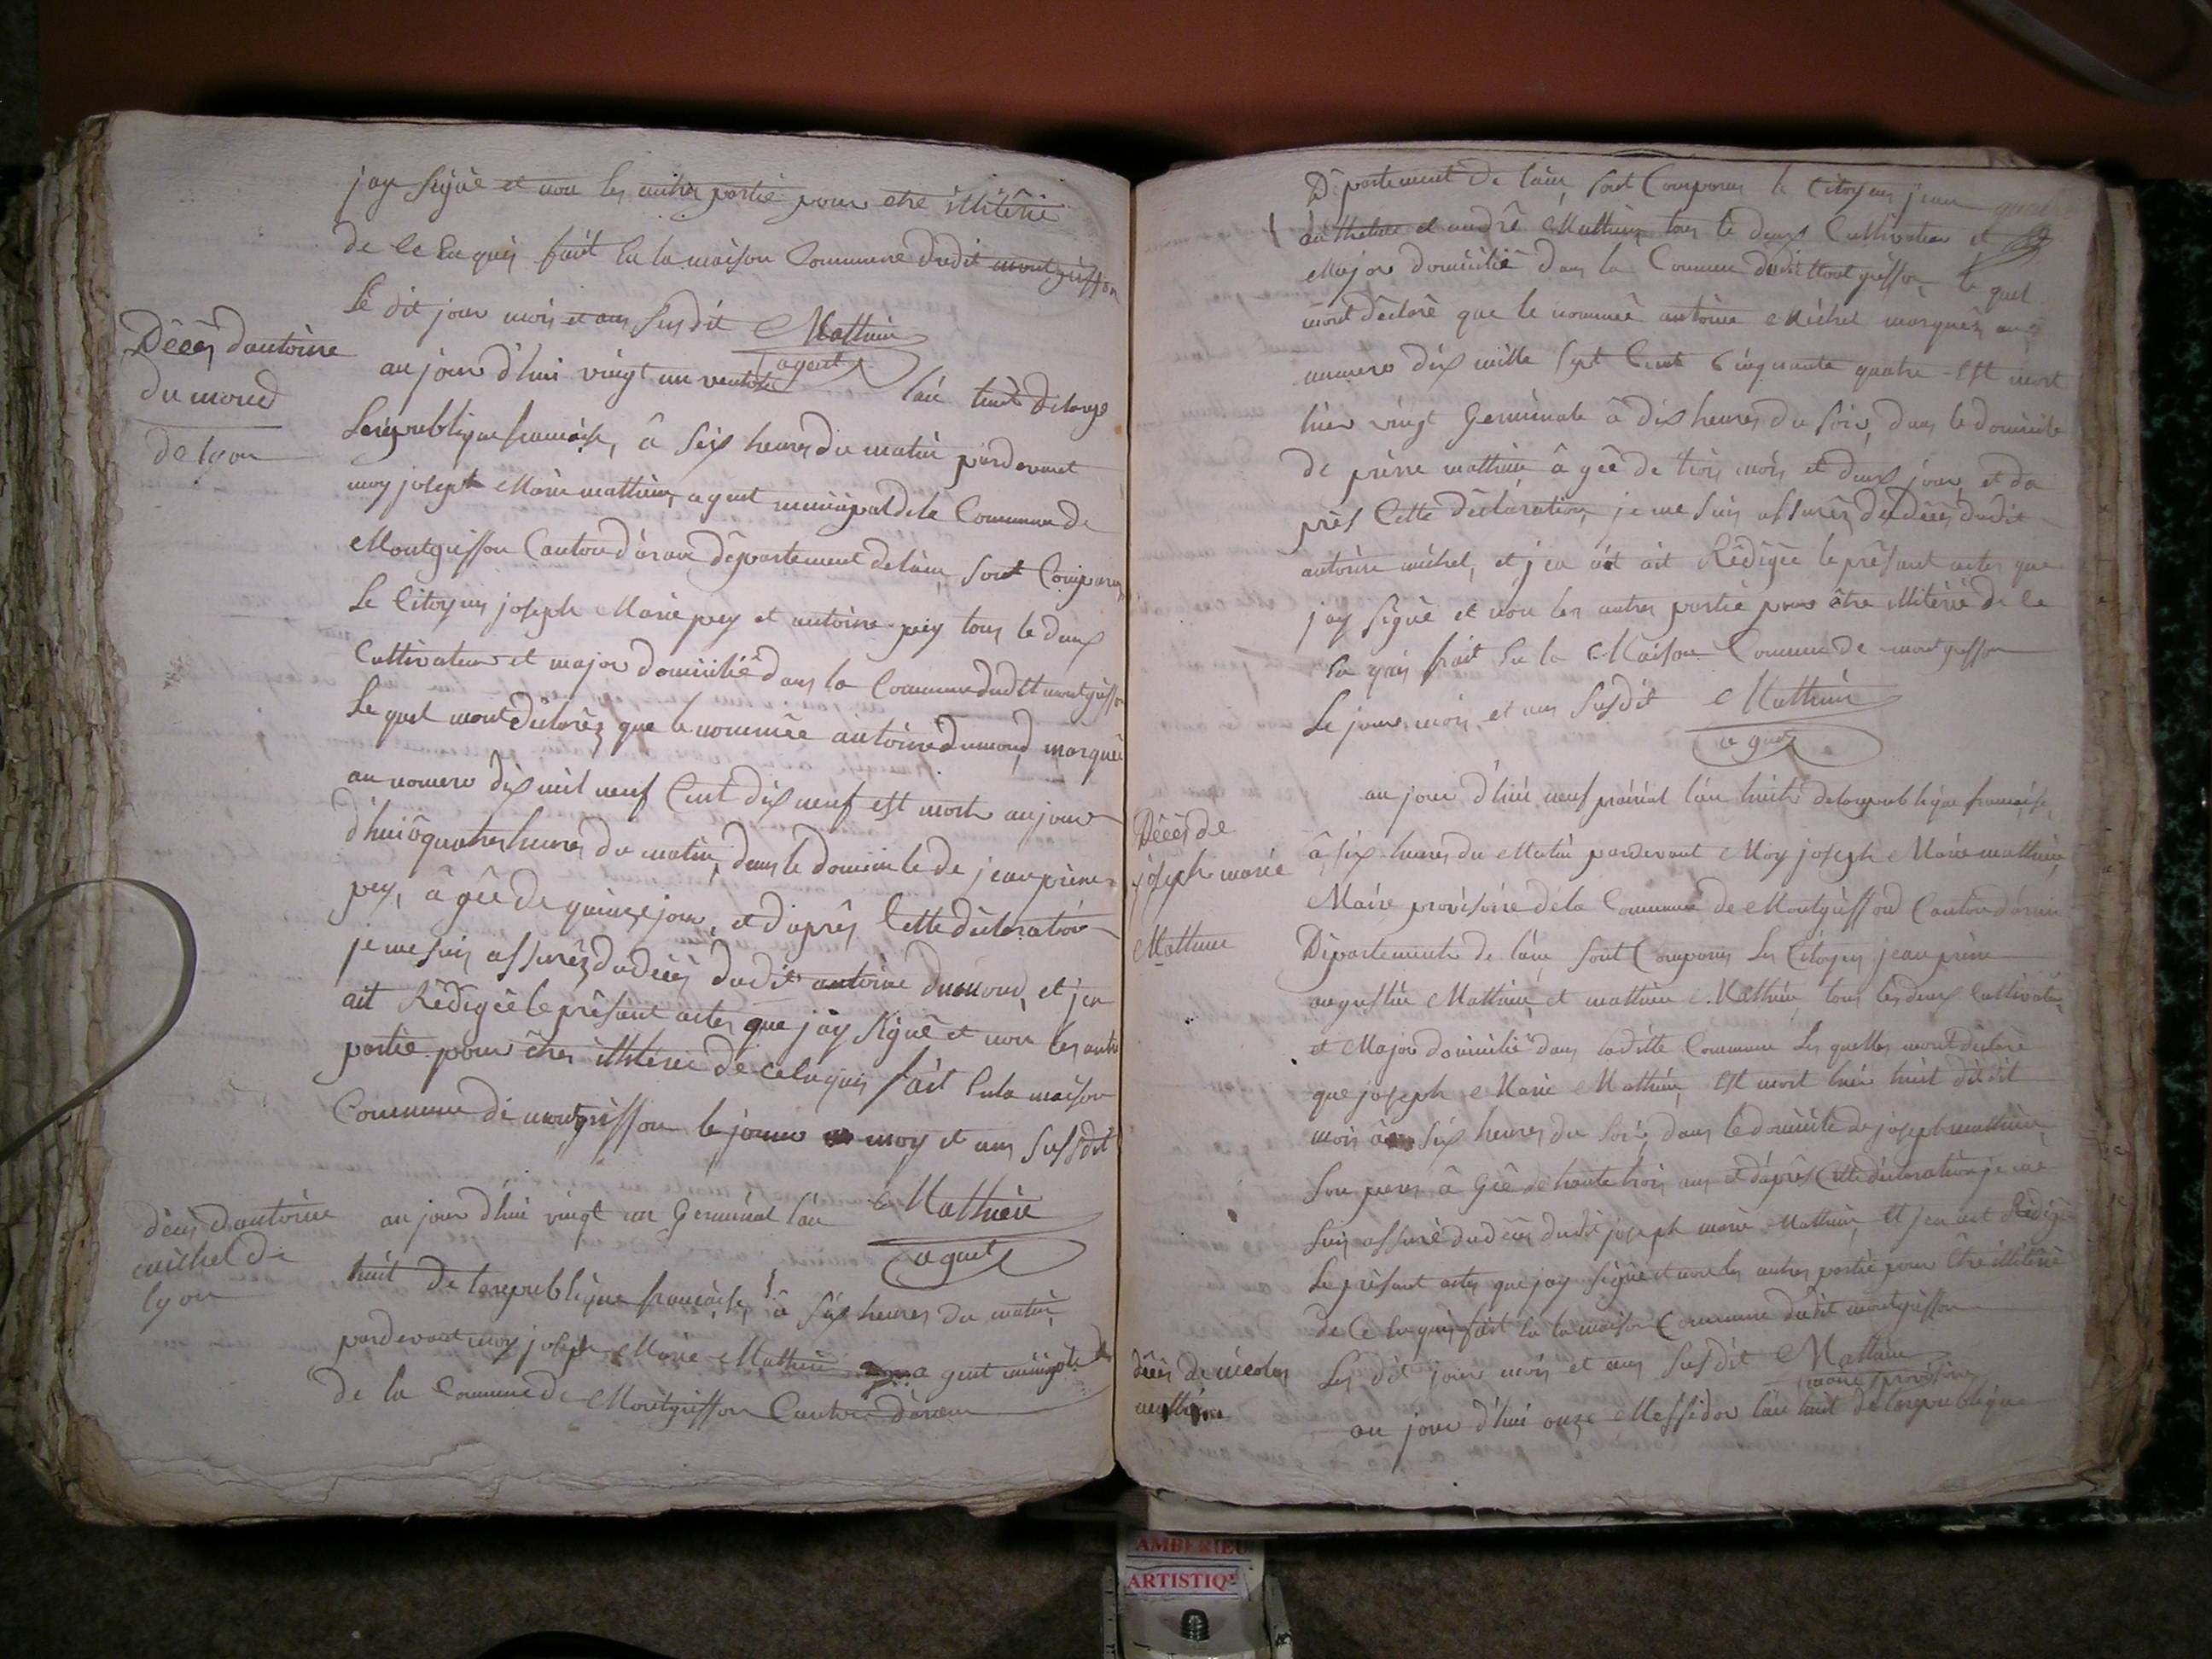 jay signé et non les autres partié pour etre illitérée
de ce enquis fait en la maison Commune dudit montgriffon
Le dit jour mois et an susdit Mathieu
agent
Décès dantoine
du mond
de lyon
aujour d'hui vingt un ventose lan huit de larepublique
française, à six heures du matin pardevant
moy joseph Marie mathieu, agent municipal de la Commune de
Montgriffon Canton d'aranc département de lain, sont Comparus
Le Citoyens joseph Marie pey et antoine pey tous le deux
Cultivateur et major domicilié dans la Commune dudit montgriffon
Le quel mont déclarés que le nommée antoine dumond, marquée
au nomero dix mil neuf Cent dix neuf est mort aujour
d'hui à quatre heures du matin, dans le domicile de jean pierre
pey, â gée de quinze jour, et d'après Cette déclaration
je me suis assurés du décès dudit antoine dumond, et jen
ait Rédigée le présent actes que jay signé et non les autre
partié pour êtres illitérée de ce enquis fait en la maison
Commune de montgriffon le jour moy et an susdit
Mathieu
agent
décès dantoine
michel de
lyon
au jour d'hui vingt un Germinal l'an
huit de larepublique française, à six heures du matin,
pardevant moy joseph Marie Mathieu agent municipale
de la Commune de Montgriffon Canton d'aranc
Département de lain, sont Comparus le Citoyens jean
et andré Mathieu tous le deux Cultivateur et
Major domicilié dans la Commune dudit Montgriffon, le quel
mont déclaré que le nommée antoine Michel marqués au
numero dix mille sept Cent Cinquante quatre est mort
hier vingt Germinale à dix heures du soir, dans le domicile
de pierre mathieu â gée de trois mois et deux jour, et da
près Cette déclaration, je me suis assurés du décès dudit
antoine michel, et jen ait Rédigée le présent actes que
jay signé et non les autres partié pour être illitérée de ce
en quis fait en la Maison Commune de montgriffon
Le jour mois et an susdit Mathieu
agent
Décès de
joseph marie
Mathieu
au jour d'hui neuf prairial lan huit de larepublique française,
à six heures du Matin pardevant Moy joseph Marie mathieu,
Maire provisoire de la Commune de Montgriffon Canton d'aranc
Département de lain, sont Comparus Les Citoyen jean pierre
augustin Mathieu et mathieu Mathieu, tous les deux Cultivateur,
et Major domicilié dans ladite Commune Les quelles mont déclaré
que joseph Marie Mathieu, est mort hier huit dudit
mois à six heures du soir, dans le domicile de joseph mathieu,
son peres â gée de trante trois ans et d'après Cette déclaration je me
suis assuré du décès dudit joseph marie Mathieu, et jen ait Rédigé
Le présent actes que jay signé et non les autres partié pour être illitérée
de Ce en quis fait en la maison Commune dudit montgriffon
Les dit jour mois et an susdit Mathieu
maire provisoire
décès de nicolas
au jour d'hui onze Messidor l'an huit de larepublique
AMBERIEU
ARTISTIQ